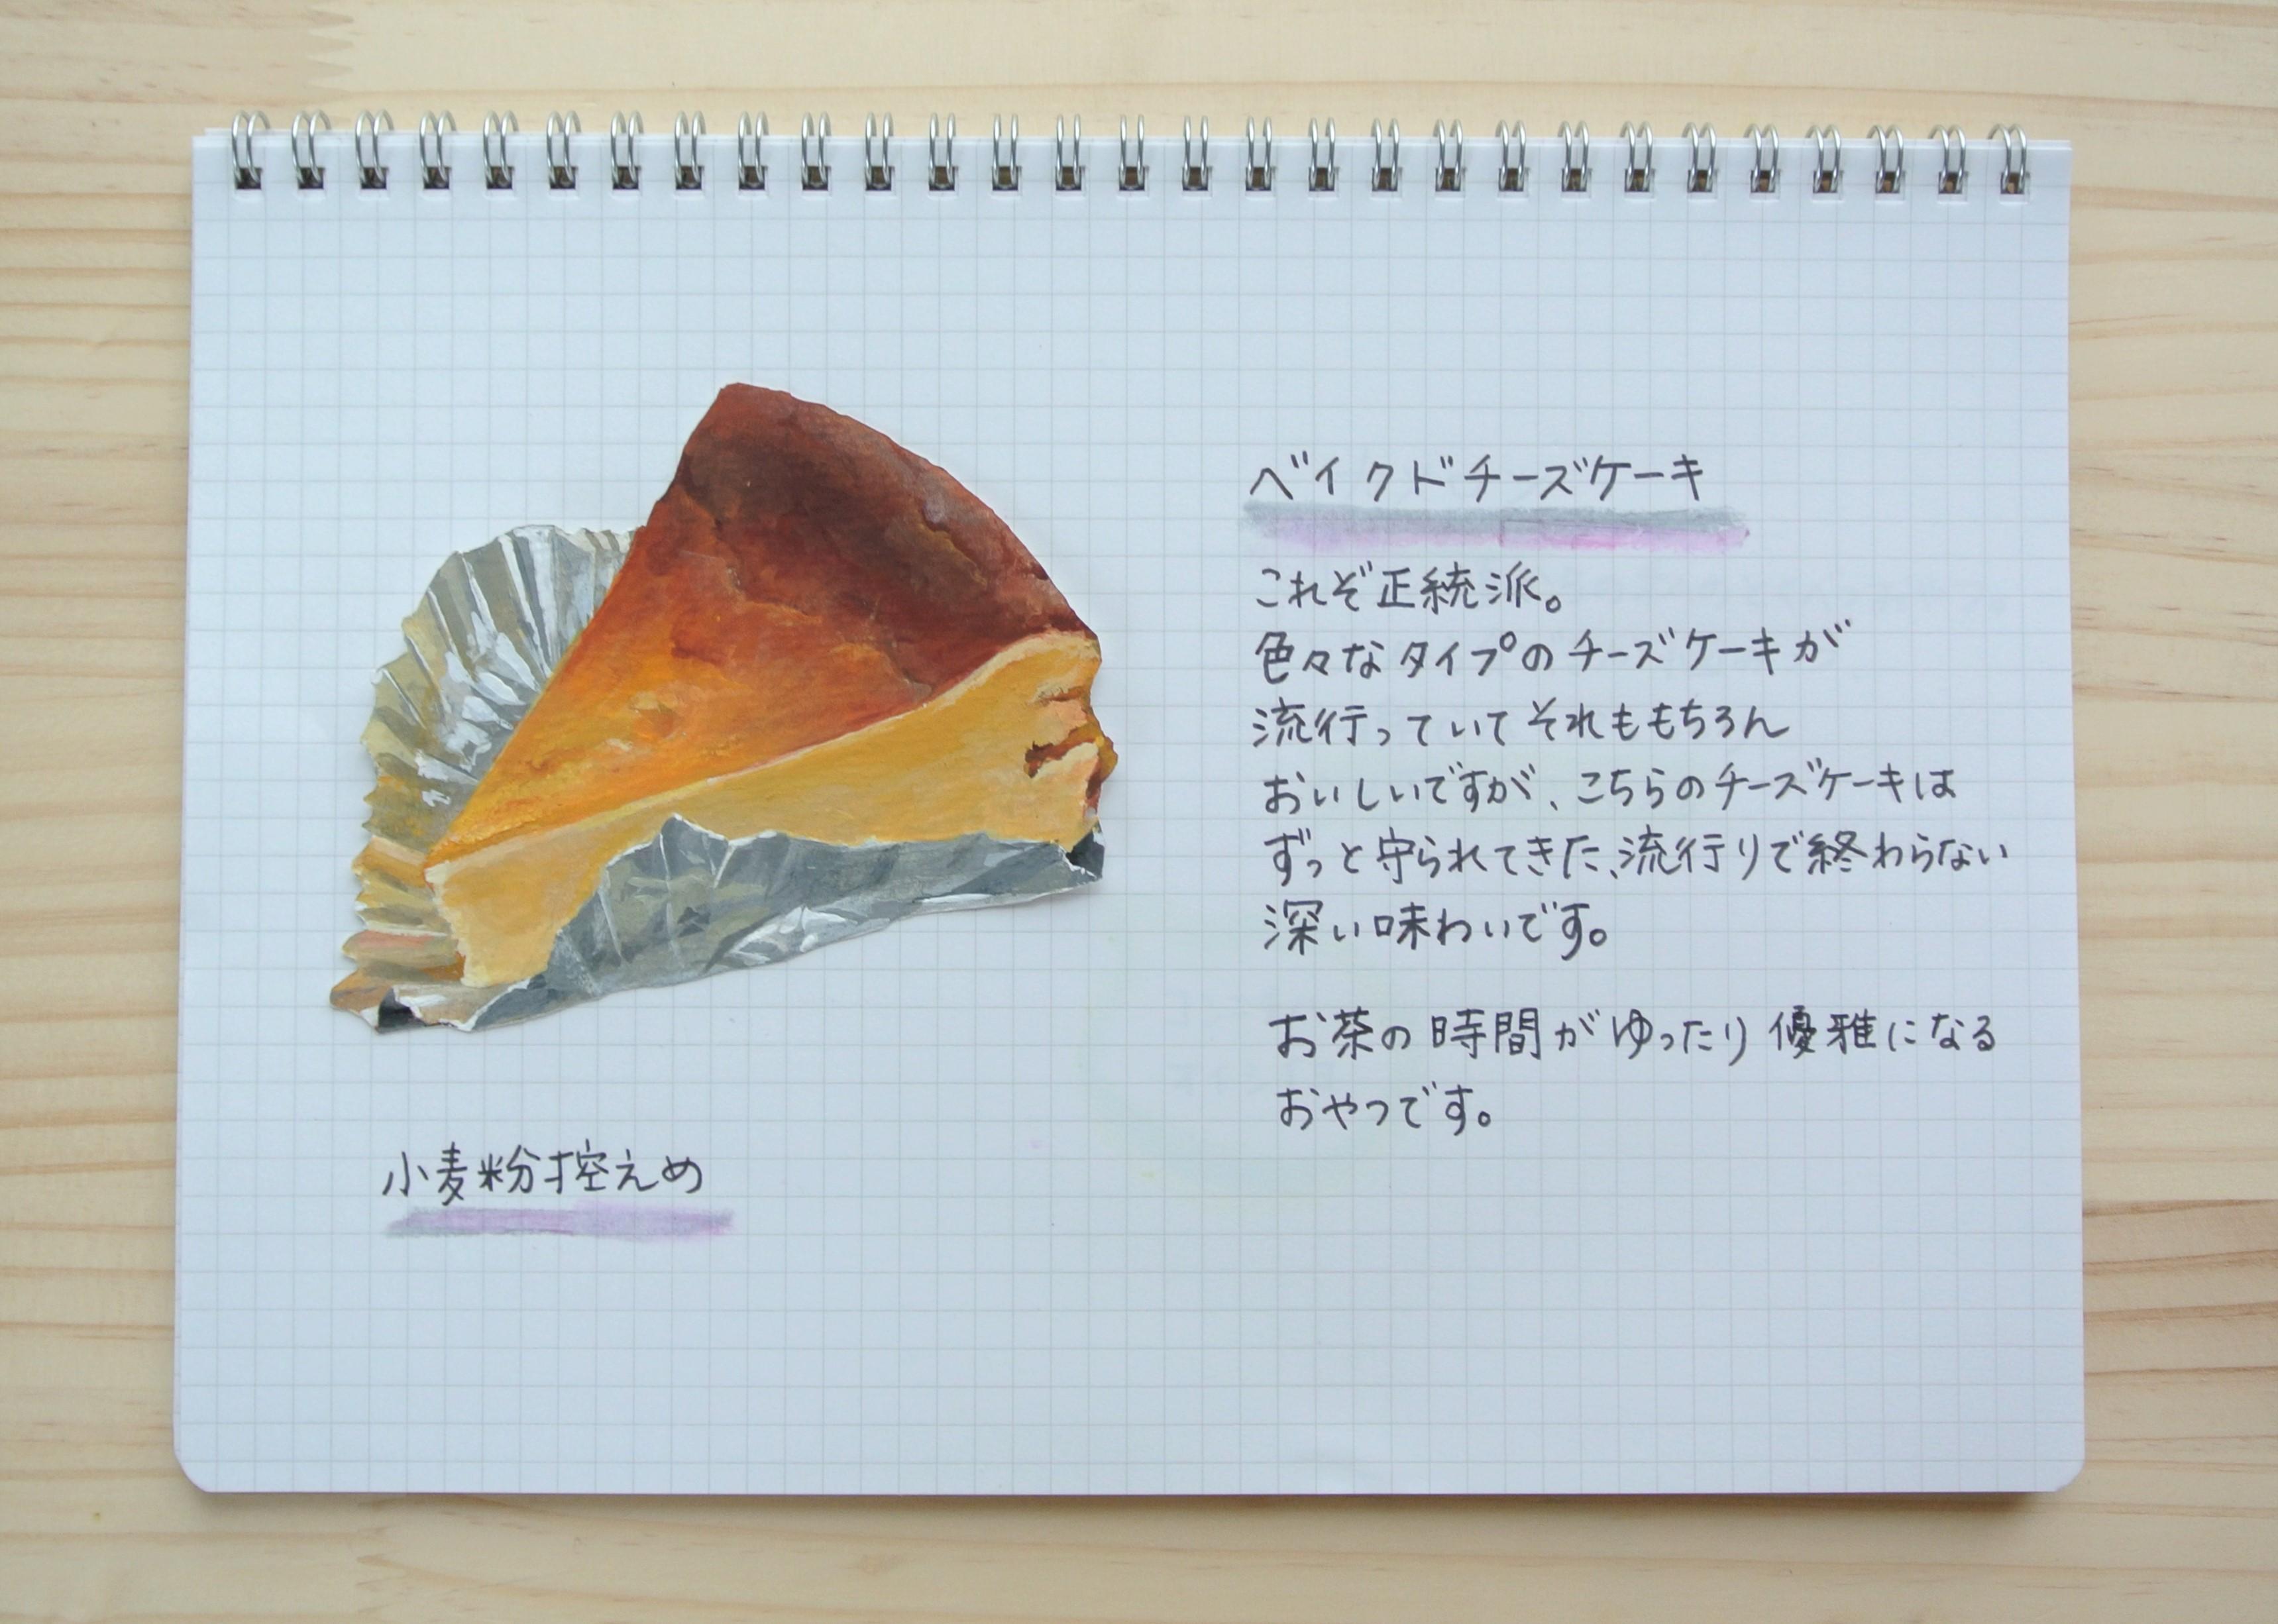 ベイクドチーズケーキ
これぞ正統派。
色々なタイプのチーズケーキが
流行っていてそれももちろん
おいしいですが、こちらのチーズケーキは
ずっと守られてきた、流行りで終わらない
深い味わいです。
お茶の時間がゆったり優雅になる
おやつです。
小麦粉控えめ